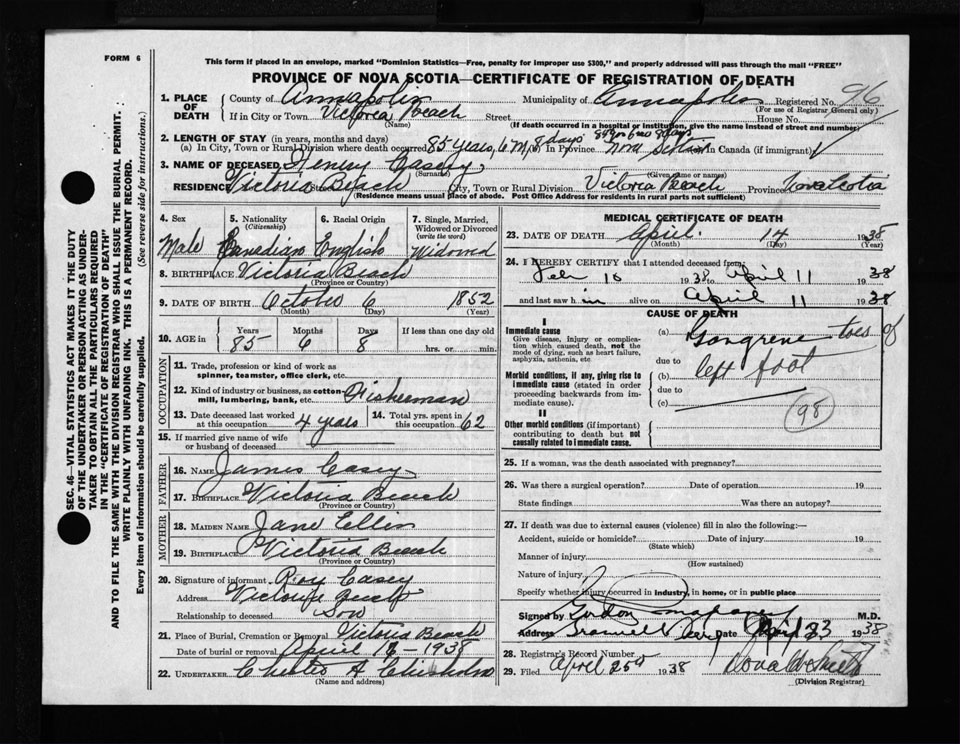 FORM 6
This form if placed in an envelope, marked "Dominion Statistics—Free, penalty for improper use $300," and properly addressed will pass through the mail "FREE"
PROVINCE OF NOVA SCOTIA—CERTIFICATE OF REGISTRATION OF DEATH
1. PLACE OF DEATH
County of Annapolis Municipality of Annapolis Registered No. 96
(For use of Registrar General only)
If in City or Town Victoria Beach Street House No.
(Name) (If death occurred in a hospital or institution, give the name instead of street and number)
2. LENGTH OF STAY (in years, months and days)
(a) In City, Town or Rural Division where death occurred 85 years, 6 M, 8 days In Province in Canada (if immigrant)
3. NAME OF DECEASED Henry Casey
(Surname) (Given name or names)
RESIDENCE Victoria Beach Street City, Town or Rural Division Victoria Beach Province Nova Scotia
(Residence means usual place of abode. Post Office Address for residents in rural parts not sufficient)
4. Sex
Male
5. Nationality
(Citizenship)
Canadian
6. Racial Origin
English
7. Single, Married, Widowed or Divorced
(write the word)
Widowed
8. BIRTHPLACE Victoria Beach
(Province or Country)
9. DATE OF BIRTH October 6 1852
(Month) (Day) (Year)
10. AGE in Years Months Days If less than one day old
85 6 8 hrs. or min.
OCCUPATION
11. Trade, profession or kind of work as spinner, teamster, office clerk, etc.
12. Kind of industry or business, as cotton mill, lumbering, bank, etc. Fisherman
13. Date deceased last worked at this occupation 4 years
14. Total yrs. spent in this occupation 62
15. If married give name of wife or husband of deceased
FATHER
16. NAME James Casey
17. BIRTHPLACE Victoria Beach
(Province or Country)
MOTHER
18. MAIDEN NAME Jane Ellis
19. BIRTHPLACE Victoria Beach
(Province or Country)
20. Signature of informant Roy Casey
Address Victoria Beach
Relationship to deceased Son
21. Place of Burial, Cremation or Removal Victoria Beach
Date of burial or removal April 1938
22. UNDERTAKER A Chisholm
(Name and address)
MEDICAL CERTIFICATE OF DEATH
23. DATE OF DEATH April 14 1938
(Month) (Day) (Year)
24. I HEREBY CERTIFY that I attended deceased from:
Feb 10 1938 to April 11 1938
and last saw him alive on April 11 1938
CAUSE OF DEATH
I
Immediate cause
Give disease, injury or complication which caused death, not the mode of dying, such as heart failure, asphyxia, asthenia, etc
(a) Gangrene toes of
due to
Morbid conditions, if any, giving rise to immediate cause (stated in order proceeding backwards from immediate cause).
(b) left foot
due to
(c)
98
II
Other morbid conditions (if important) contributing to death but not causally related to immediate cause.
25. If a woman, was the death associated with pregnancy?
26. Was there a surgical operation? Date of operation 19
State findings Was there an autopsy?
27. If death was due to external causes (violence) fill in also the following:—
Accident, suicide or homicide? Date of injury 19
(State which)
Manner of injury
(How sustained)
Nature of injury
Specify whether injury occurred in industry, in home, or in public place
Signed by Gordon M.D.
Address Date April 23 1938
28. Registrar's Record Number
29. Filed April 25th 1938
(Division Registrar)
SEC. 46—VITAL STATISTICS ACT MAKES IT THE DUTY OF THE UNDERTAKER OR PERSON ACTING AS UNDERTAKER TO OBTAIN ALL THE PARTICULARS REQUIRED IN THE "CERTIFICATE OF REGISTRATION OF DEATH"
AND TO FILE THE SAME WITH THE DIVISION REGISTRAR WHO SHALL ISSUE THE BURIAL PERMIT.
WRITE PLAINLY WITH UNFADING INK. THIS IS A PERMANENT RECORD.
Every item of information should be carefully supplied. (See reverse side for instructions.)